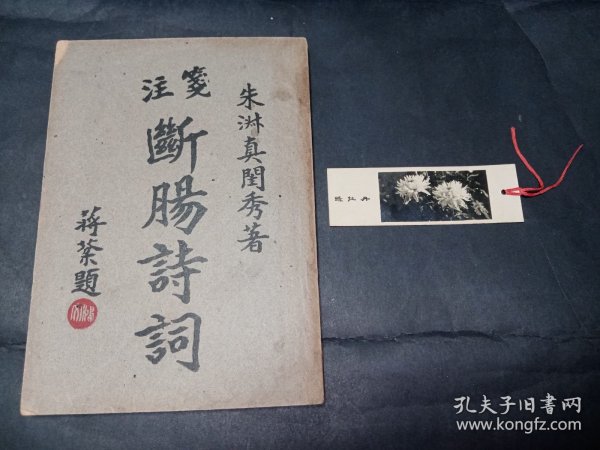 朱淑真閨秀著
箋注
斷腸詩詞
蔣棻題
孔夫子旧书网
www.kongfz.com